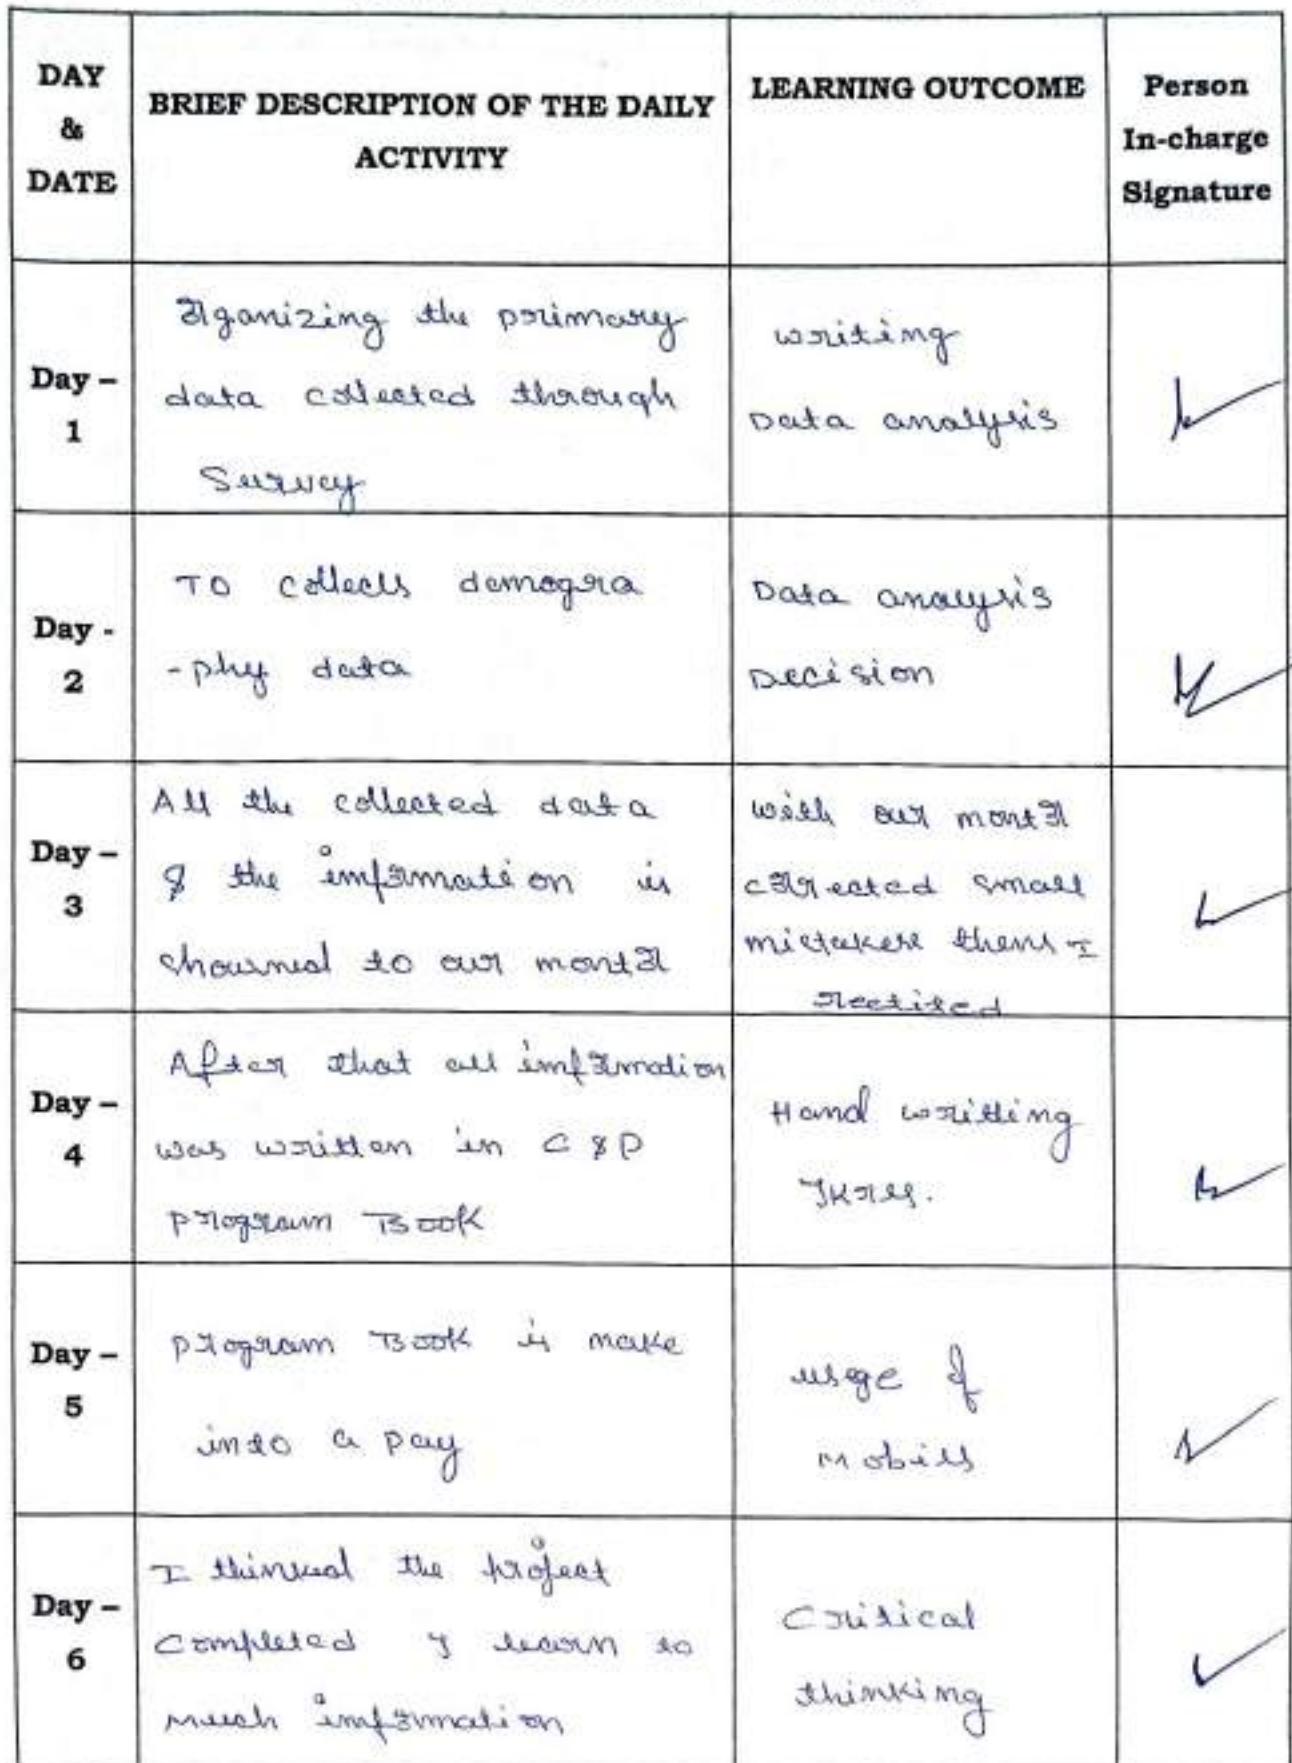 DAY
&
DATE
BRIEF DESCRIPTION OF THE DAILY
ACTIVITY
LEARNING OUTCOME
Person
In-charge
Signature
Day –
1
organizing the primary
data collected through
Survey
writing
Data analysis
Day -
2
To collects demogra
-phy data
Data analysis
Decision
Day –
3
All the collected data
& the information is
to our mentor
with our mentor
corrected small
I
Day –
4
After that all information
was written in CSP
program Book
Hand writting
Day –
5
program Book is make
into a pay
usge of
Mobills
Day –
6
I the project
completed I learn to
much information
Critical
thinking